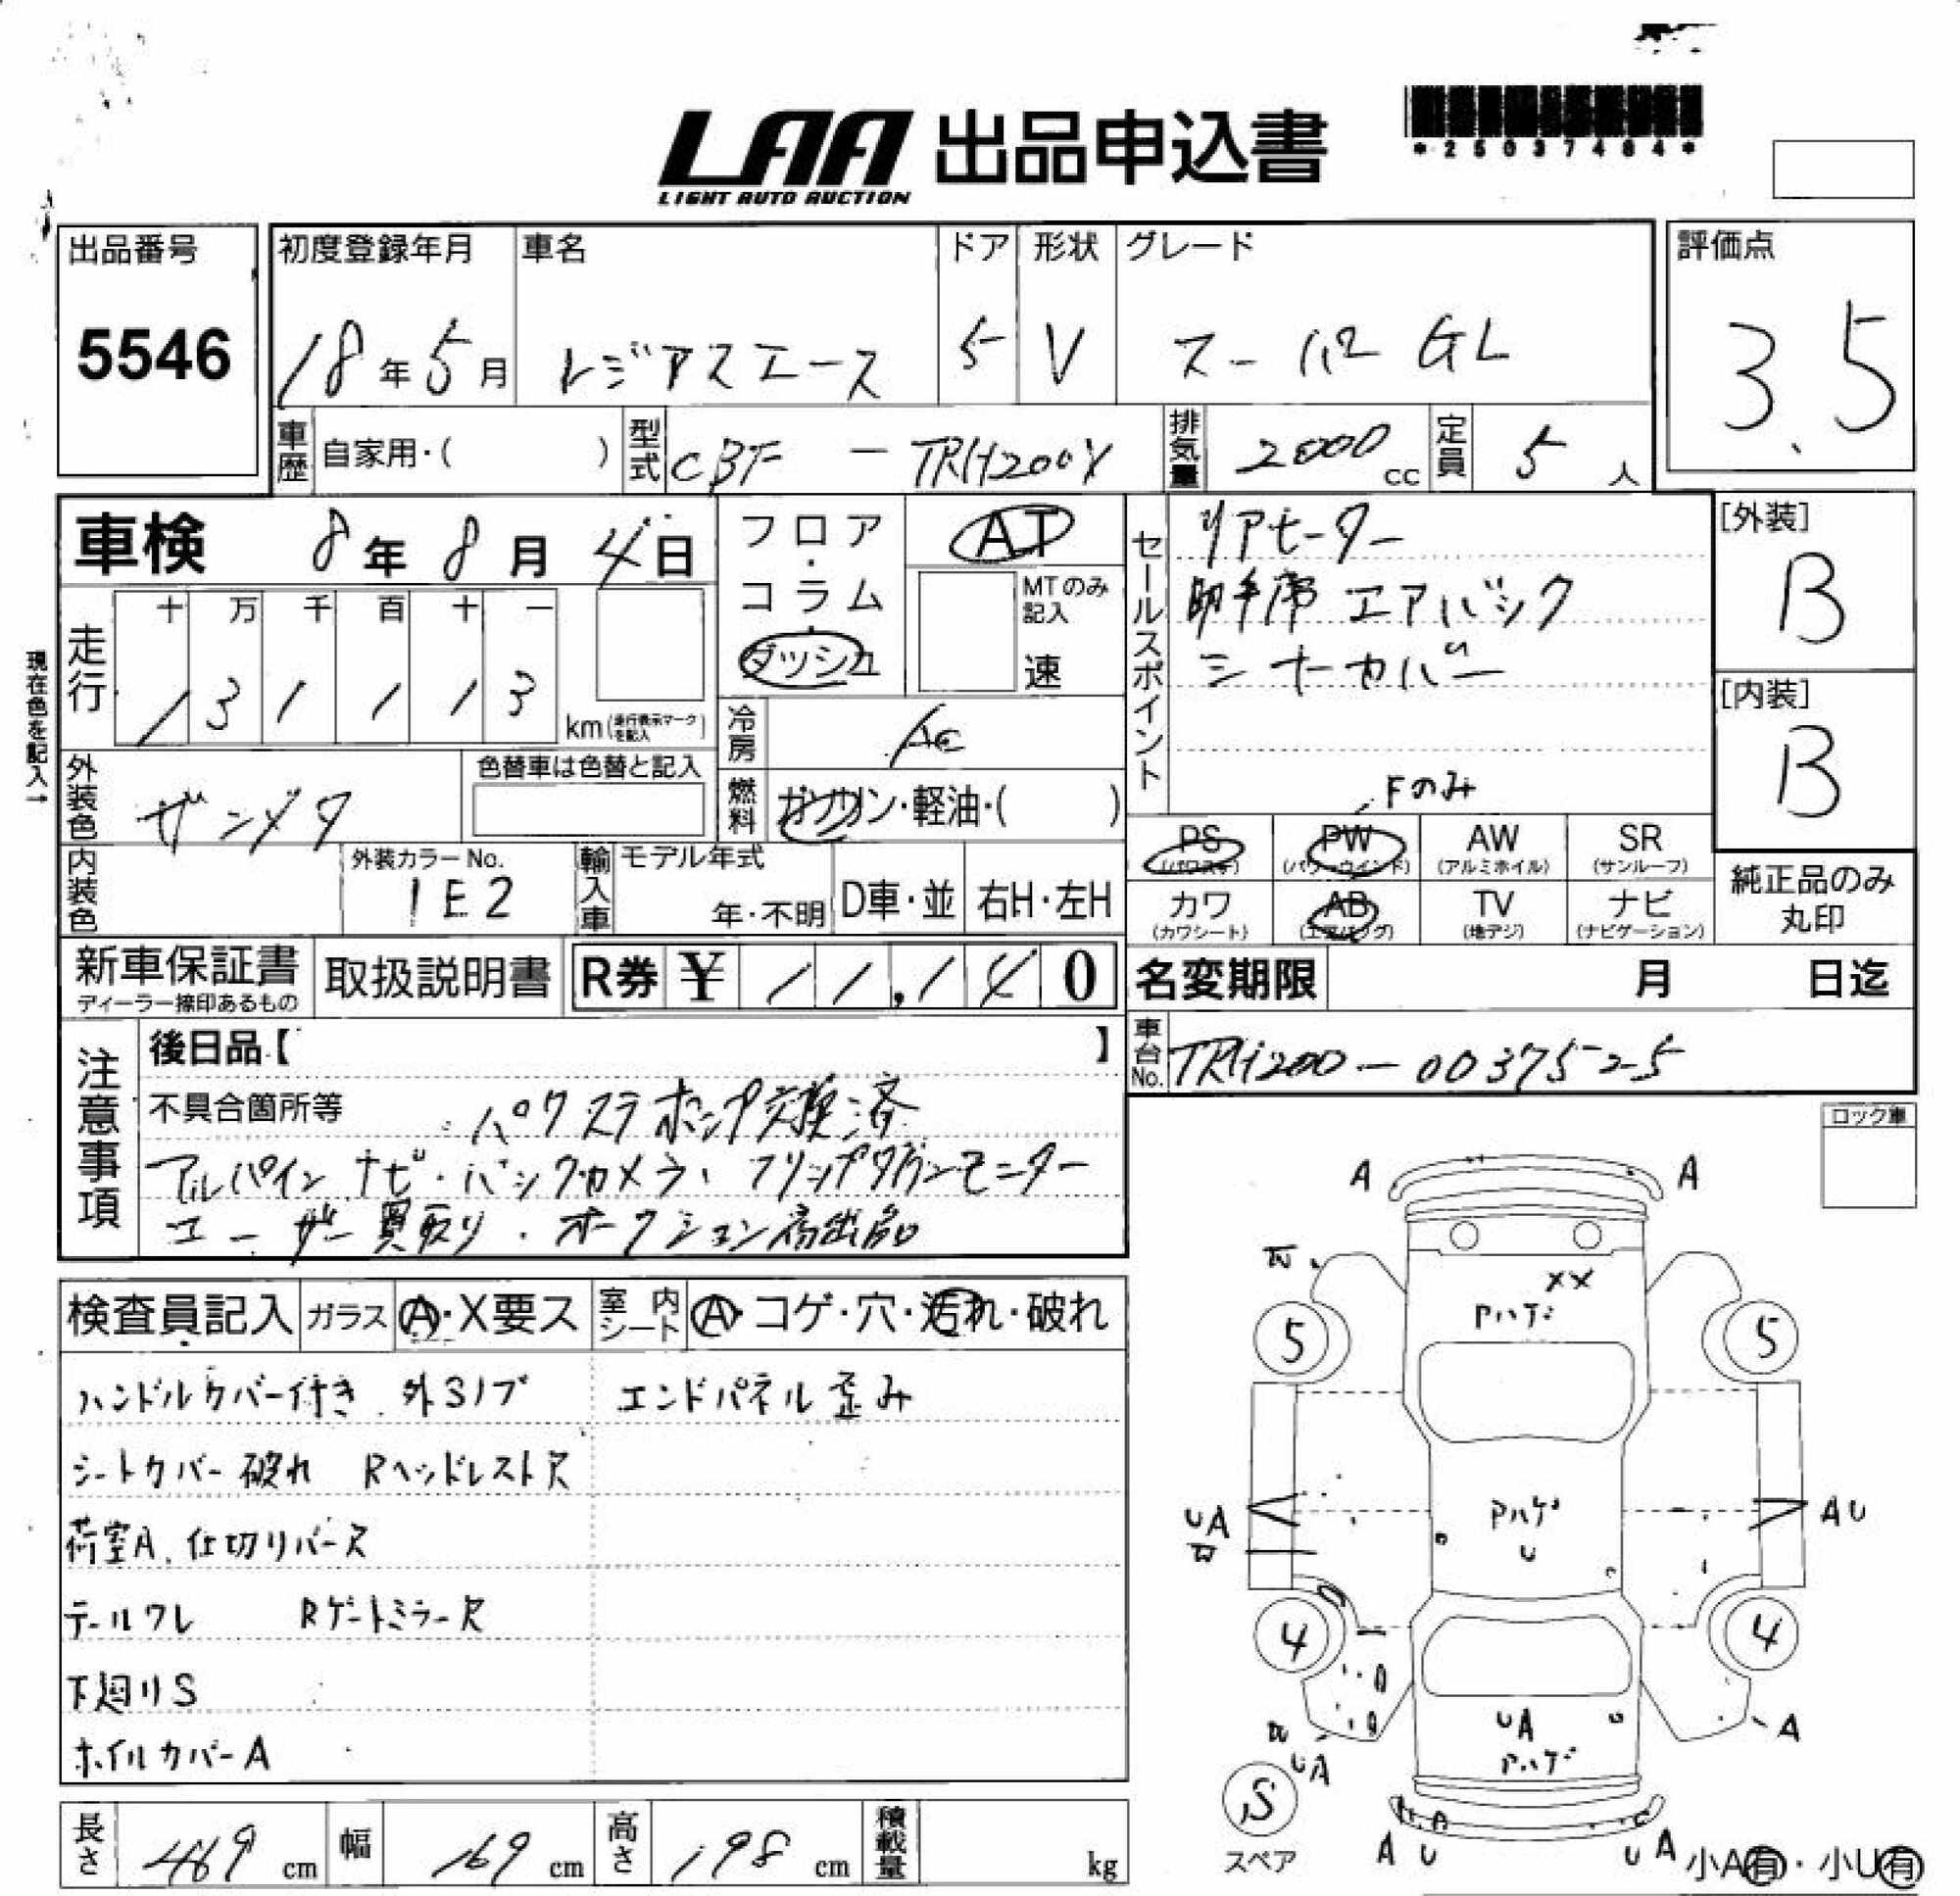 LAA 出品申込書
LIGHT AUTO AUCTION
*25037484*
出品番号
5546
初度登録年月
18年5月
車名
レジアスエース
ドア
5
形状
V
グレード
スーパーGL
評価点
3.5
車歴
自家用・( )
型式
CBF - TRH200V
排気量
2000cc
定員
5人
車検 8年8月4日
フロア・コラム・ダッシュ
AT
MTのみ記入
速
セールスポイント
リアヒーター
助手席エアバック
シートカバー
[外装]
B
[内装]
B
現在色を記入→
走行
十 万 千 百 十 一
1 3 1 1 1 3
km(走行表示マークを記入)
冷房
AC
燃料
ガソリン・軽油・( )
外装色
色替車は色替と記入
内装色
外装カラーNo.
1E2
輸入車
モデル年式
年・不明
D車・並
右H・左H
Fのみ
PS (パワステ)
PW (パワーウインド)
AW (アルミホイル)
SR (サンルーフ)
カワ (カワシート)
AB (エアバッグ)
TV (地デジ)
ナビ (ナビゲーション)
純正品のみ丸印
新車保証書
ディーラー捺印あるもの
取扱説明書
R券 ¥ 11,140
名変期限 月 日迄
車台No.
TRH200-0037525
注意事項
後日品【 】
不具合箇所等
パワステポンプ交換済
アルパインナビ・バックカメラ、フリップダウンモニター
ユーザー買取り・オークション初出品
ロック車
検査員記入
ガラス
A・X要ス
室内シート
A・コゲ・穴・汚れ・破れ
ハンドルカバー付き 外Sノブ
エンドパネル歪み
シートカバー破れ Rヘッドレスト欠
荷室A、仕切りバー欠
テールワレ Rゲートミラー欠
下廻りS
ホイルカバーA
長さ
469cm
幅
169cm
高さ
198cm
積載量
kg
A A
XX
Pハゲ
5 5
UA
AU
Pハゲ
U
4 4
UA
Pハゲ
A
UA
S
スペア
A U
U A
小A有・小U有